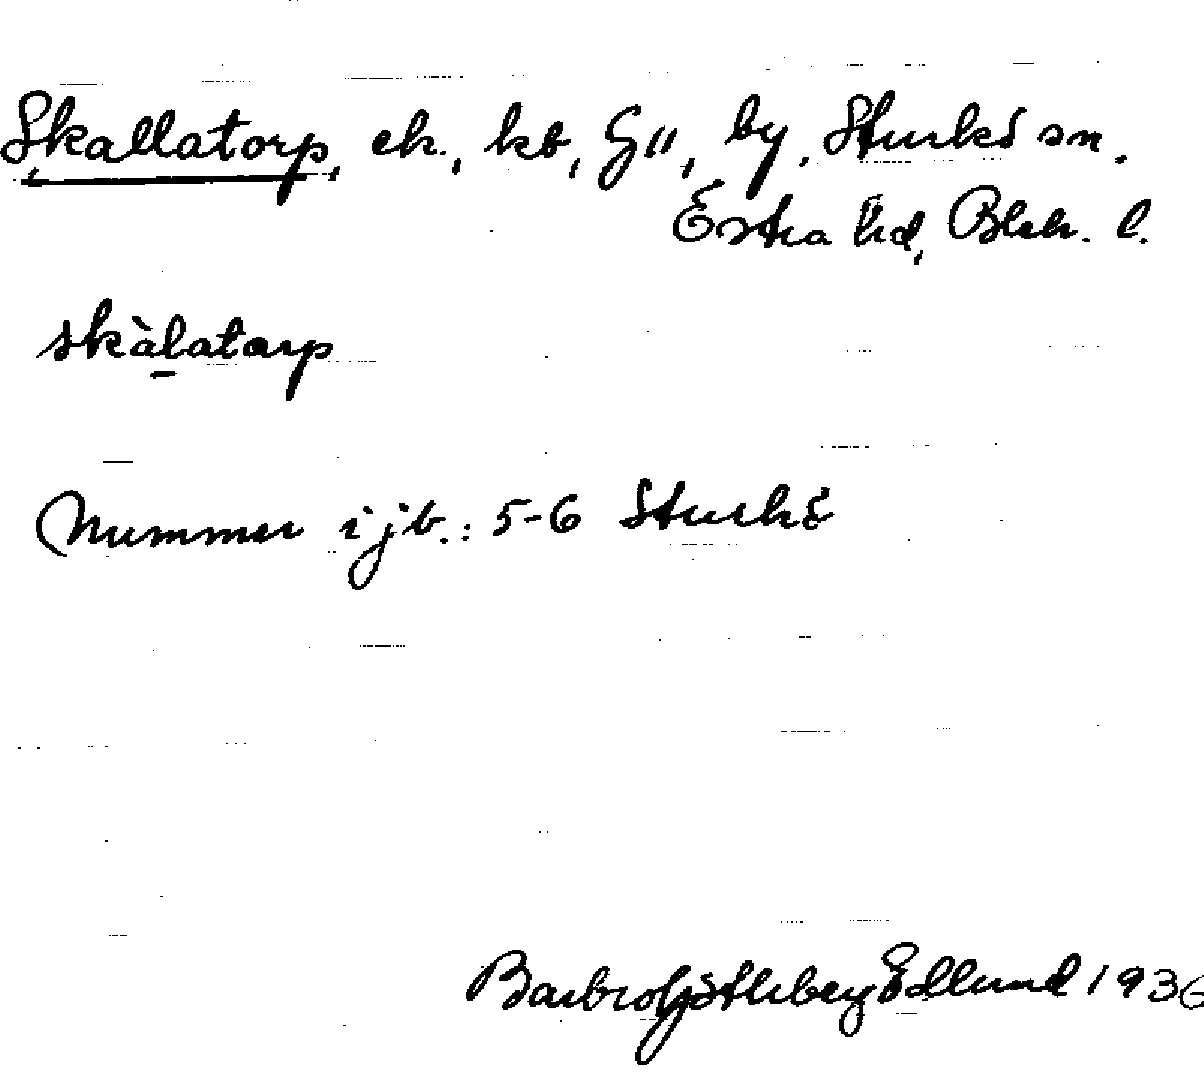 Skallatorp, ek., kb, G11, by, Sturkö sn.
Östra hd, Blek. l.
skàlatarp
Nummer i jb.: 5-6 Sturkö
Barbro Götheberg Edlund 1936